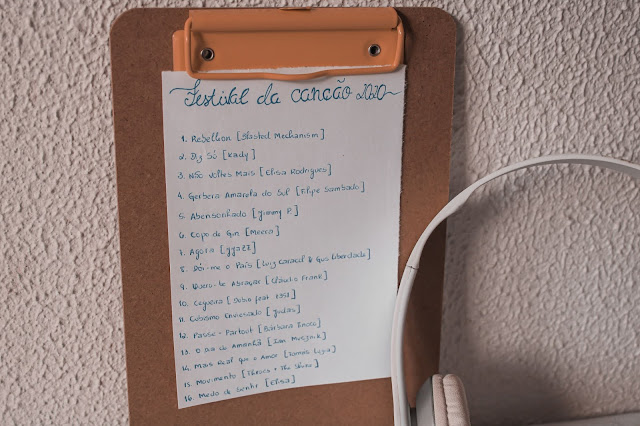 Festival da canção 2020
1. Rebellion [Blasted Mechanism]
2. Diz Só [Kady]
3. Não Voltes Mais [Elisa Rodrigues]
4. Gerbera Amarela do Sul [Filipe Sambado]
5. Abensonhado [Jimmy P.]
6. Copo de Gin [Meera]
7. Agora [JJaZZ]
8. Dói-me o País [Luiz Caracol & Gus Liberdade]
9. Quero-te Abraçar [Cláudio Frank]
10. Cegueira [Dubio feat +351]
11. Cubismo Enviesado [Judas]
12. Passe-Partout [Bárbara Tinoco]
13. O Dia de Amanhã [Ian Mucznik]
14. Mais Real que o Amor [Tomás Luzia]
15. Movimento [Throes + The Shine]
16. Medo de Sentir [Elisa]